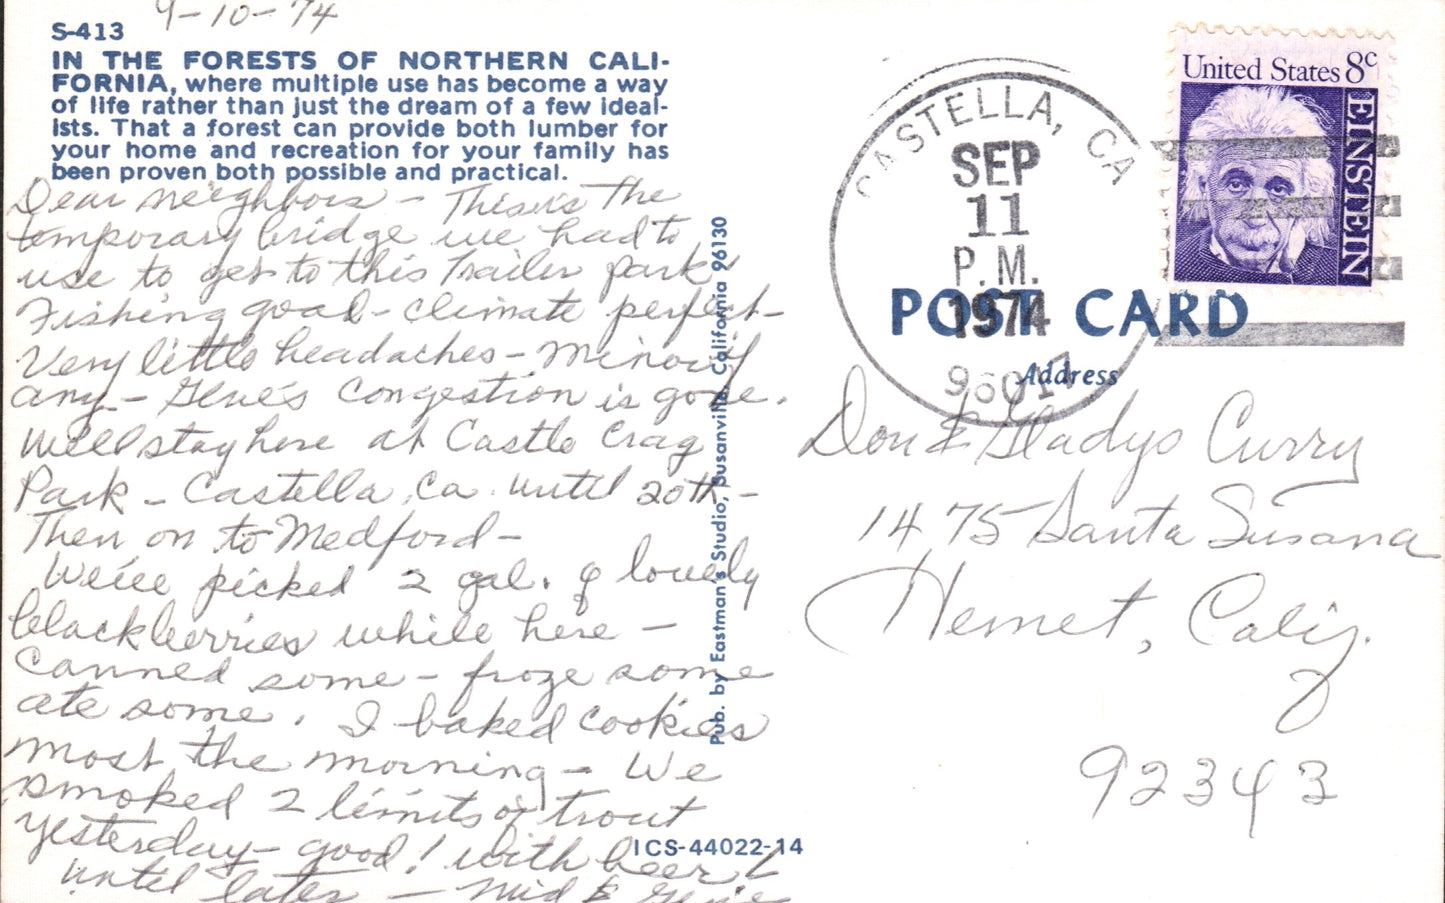 9-10-74
S-413
IN THE FORESTS OF NORTHERN CALI-
FORNIA, where multiple use has become a way
of life rather than just the dream of a few ideal-
ists. That a forest can provide both lumber for
your home and recreation for your family has
been proven both possible and practical.
Dear neighbors - This is the
temporary bridge we had to
use to get to this Trailer park
Fishing good - climate perfect -
Very little headaches - minor if
any - Gene's congestion is gone.
Will stay here at Castle Crag
Park - Castella, Ca. until 20th -
Then on to Medford -
We've picked 2 gal. of lovely
blackberries while here -
canned some - froze some
ate some. I baked cookies
most the morning - We
smoked 2 limits of trout
yesterday - good! with beer!
until later - Mid & Gene
Pub. by Eastman's Studio, Susanville, California 96130
ICS-44022-14
CASTELLA, CA
SEP
11
P.M.
1974
96017
United States 8c
EINSTEIN
POST CARD
Address
Don & Gladys Curry
1475 Santa Susana
Hemet, Calif.
92343